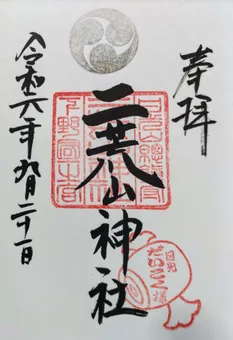 奉拝
二荒山神社
日光
だいこく様
令和六年九月二十一日